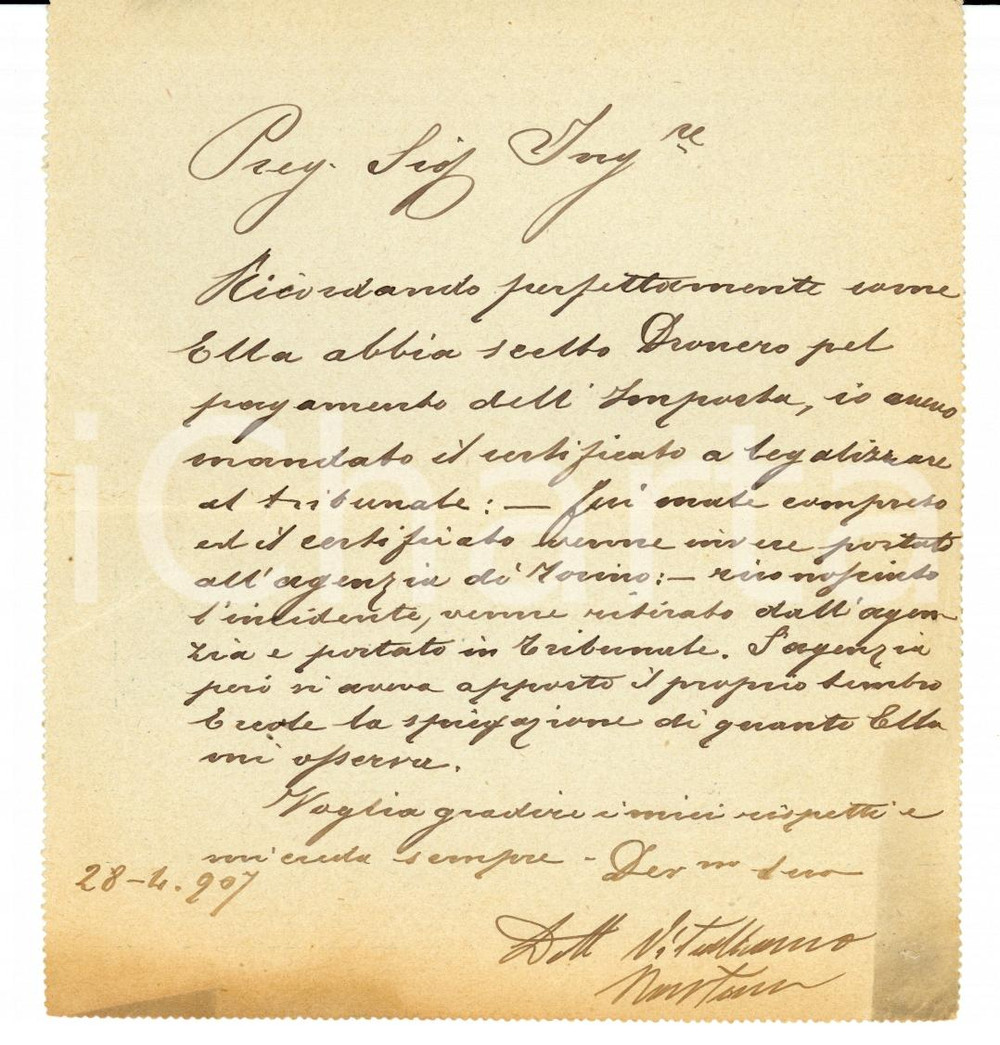 Preg. Sig Ing re
Ricordando perfettamente come
Ella abbia scelto Dronero pel
pagamento dell' Imposta, io avevo
mandato il certificato a legalizzare
al tribunale: — fui male compreso
ed il certificato venne invece portato
all'agenzia di Torino: — riconosciuto
l'incidente, venne ritirato dall'agen-
zia e portato in Tribunale. L'agenzia
però vi aveva apposto il proprio timbro
E ecole la spiegazione di quanto Ella
mi osserva.
Voglia gradire i miei rispetti e
mi creda sempre - Dev mo suo
28-4.907
Dott Vitaliano
iCharta